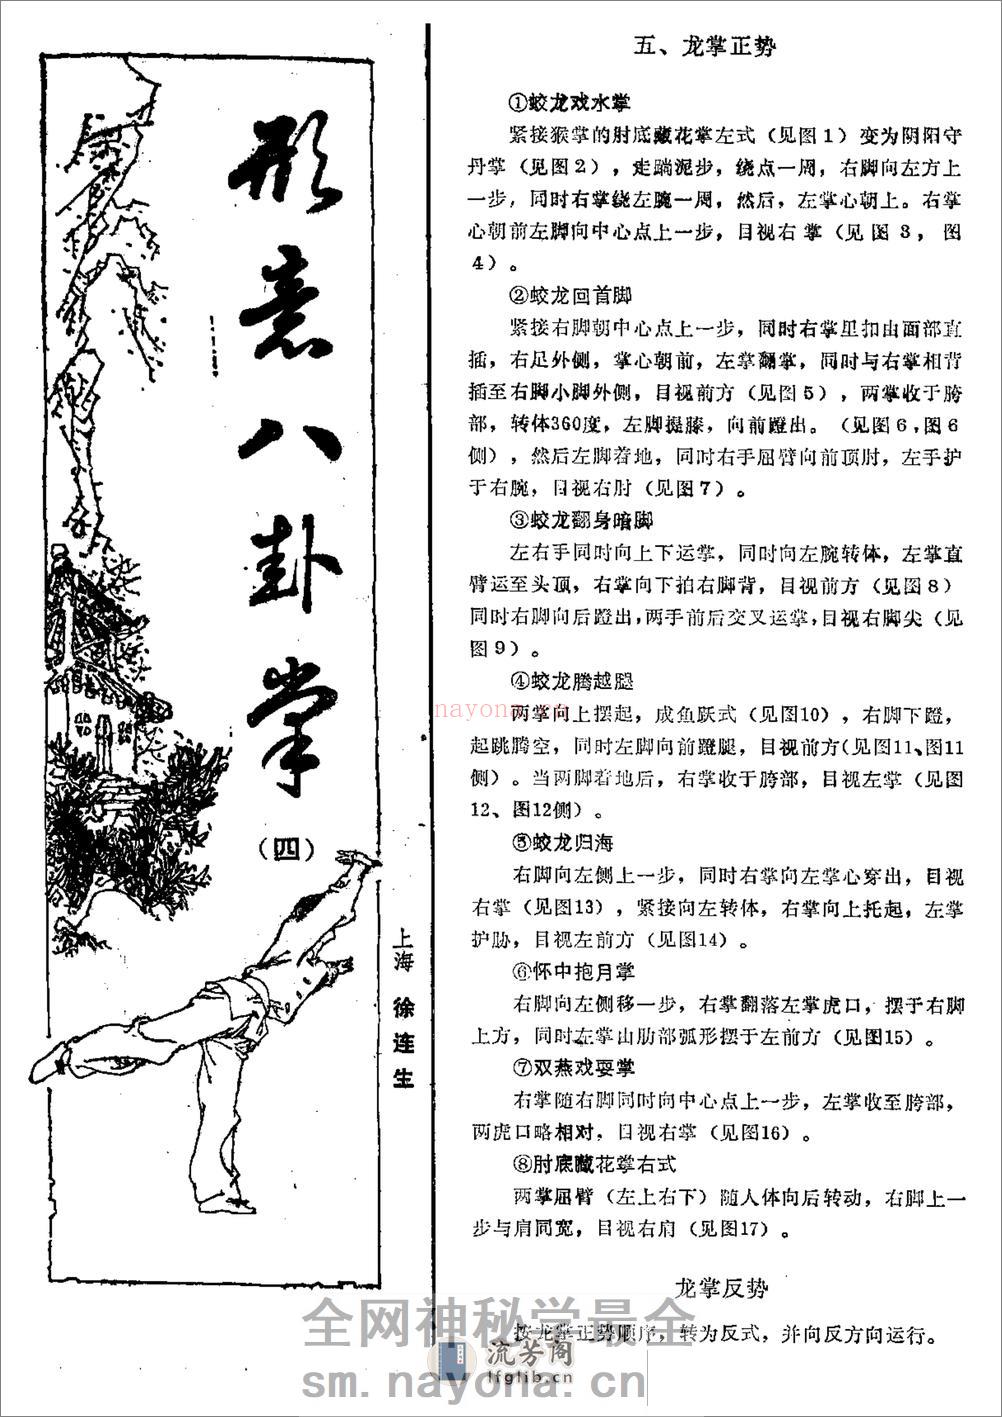 形意八卦掌
（四）
上海 徐连生
五、龙掌正势
①蛟龙戏水掌
紧接猴掌的肘底藏花掌左式（见图1）变为阴阳守
丹掌（见图2），走踹泥步，绕点一周，右脚向左方上
一步，同时右掌绕左腕一周，然后，左掌心朝上。右掌
心朝前左脚向中心点上一步，目视右掌（见图3，图
4）。
②蛟龙回首脚
紧接右脚朝中心点上一步，同时右掌里扣由面部直
插，右足外侧，掌心朝前，左掌翻掌，同时与右掌相背
插至右脚小脚外侧，目视前方（见图5），两掌收于胯
部，转体360度，左脚提膝，向前蹬出。（见图6，图6
侧），然后左脚着地，同时右手屈臂向前顶肘，左手护
于右腕，目视右肘（见图7）。
③蛟龙翻身暗脚
左右手同时向上下运掌，同时向左腕转体，左掌直
臂运至头顶，右掌向下拍右脚背，目视前方（见图8）
同时右脚向后蹬出，两手前后交叉运掌，目视右脚尖（见
图9）。
④蛟龙腾越腿
两掌向上摆起，成鱼跃式（见图10），右脚下蹬，
起跳腾空，同时左脚向前蹬腿，目视前方（见图11、图11
侧）。当两脚着地后，右掌收于胯部，目视左掌（见图
12、图12侧）。
⑤蛟龙归海
右脚向左侧上一步，同时右掌向左掌心穿出，目视
右掌（见图13），紧接向左转体，右掌向上托起，左掌
护胁，目视左前方（见图14）。
⑥怀中抱月掌
右脚向左侧移一步，右掌翻落左掌虎口，摆于右脚
上方，同时左掌由肋部弧形摆于左前方（见图15）。
⑦双燕戏耍掌
右掌随右脚同时向中心点上一步，左掌收至胯部，
两虎口略相对，目视右掌（见图16）。
⑧肘底藏花掌右式
两掌屈臂（左上右下）随人体向后转动，右脚上一
步与肩同宽，目视右肩（见图17）。
龙掌反势
按龙掌正势顺序，转为反式，并向反方向运行。
nayona.cn
全网神秘学最全
sm.nayona.cn
流芳阁
lfglib.cn